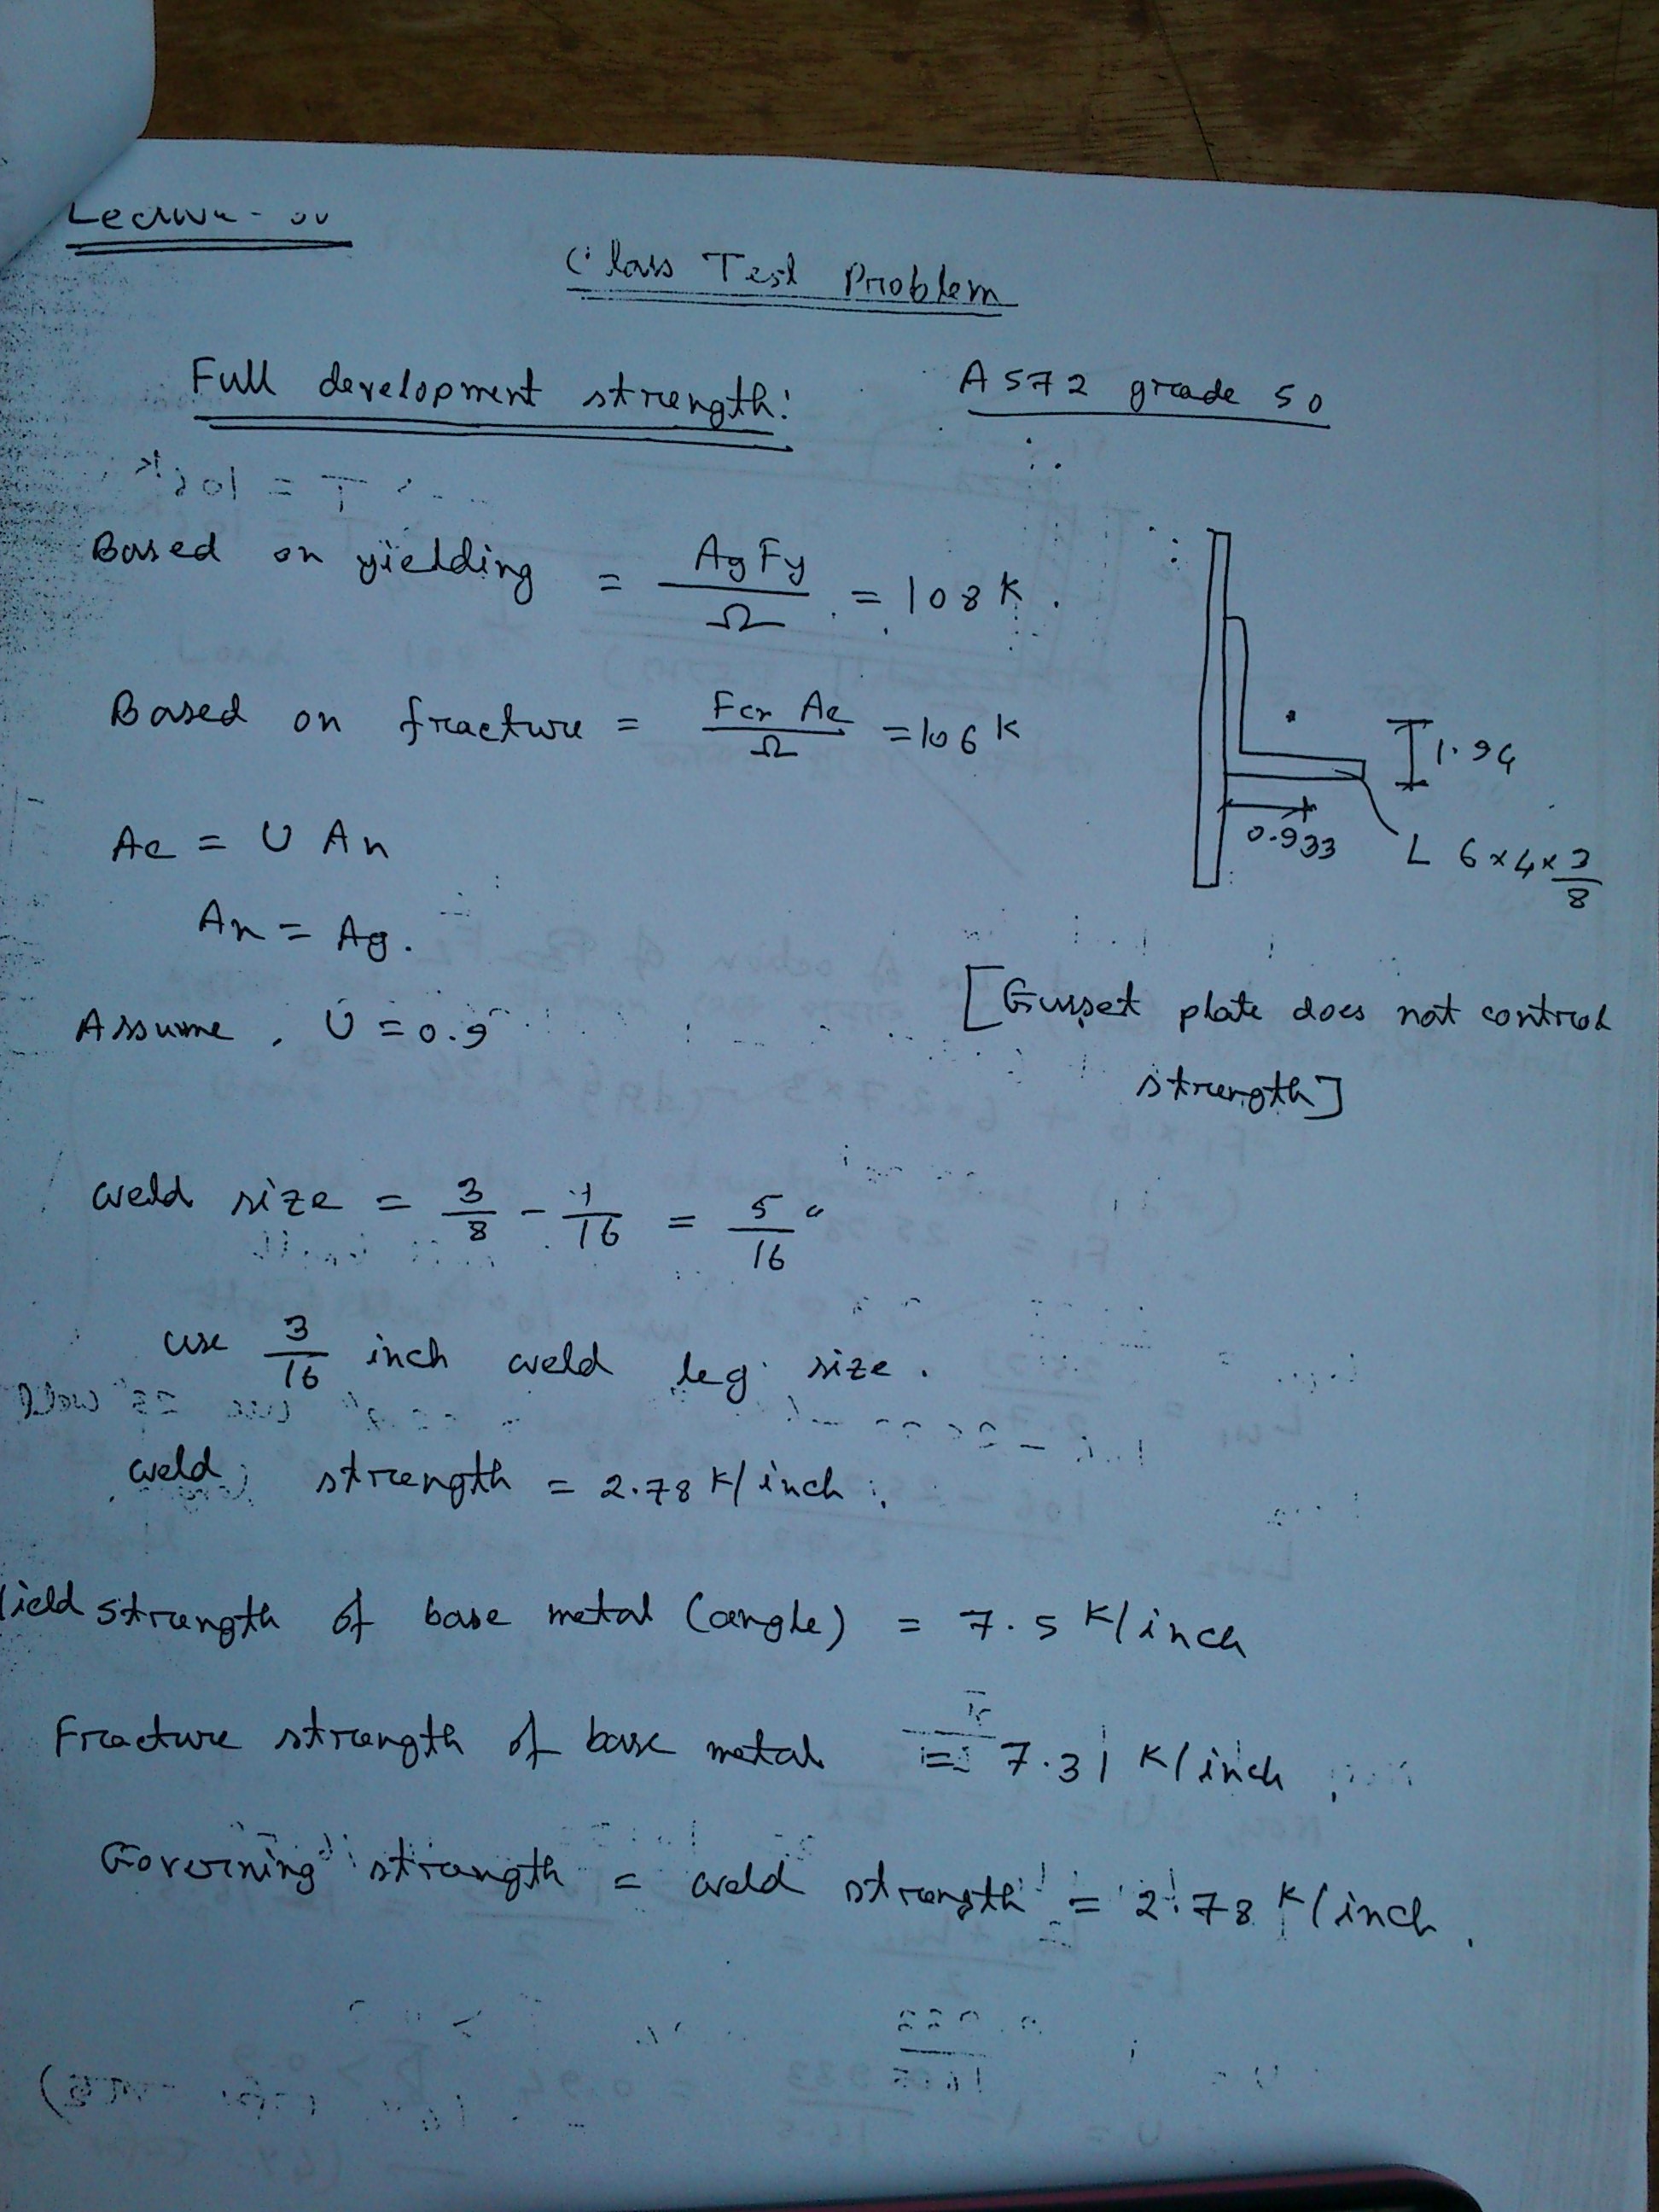 Class Test Problem
Full development strength:
A572 grade 50
Based on yielding = AgFy / Ω = 108 K.
Based on fracture = Fcr Ae / Ω = 106 K
1.94
0.933
L 6×4×3/8
Ae = U An
An = Ag.
Assume, U = 0.9
[Gusset plate does not control
strength]
weld size = 3/8 - 1/16 = 5/16"
use 3/16 inch weld leg size.
weld strength = 2.78 K/inch.
Yield strength of base metal (angle) = 7.5 K/inch
Fracture strength of base metal = 7.31 K/inch
Governing strength = weld strength = 2.78 K/inch.